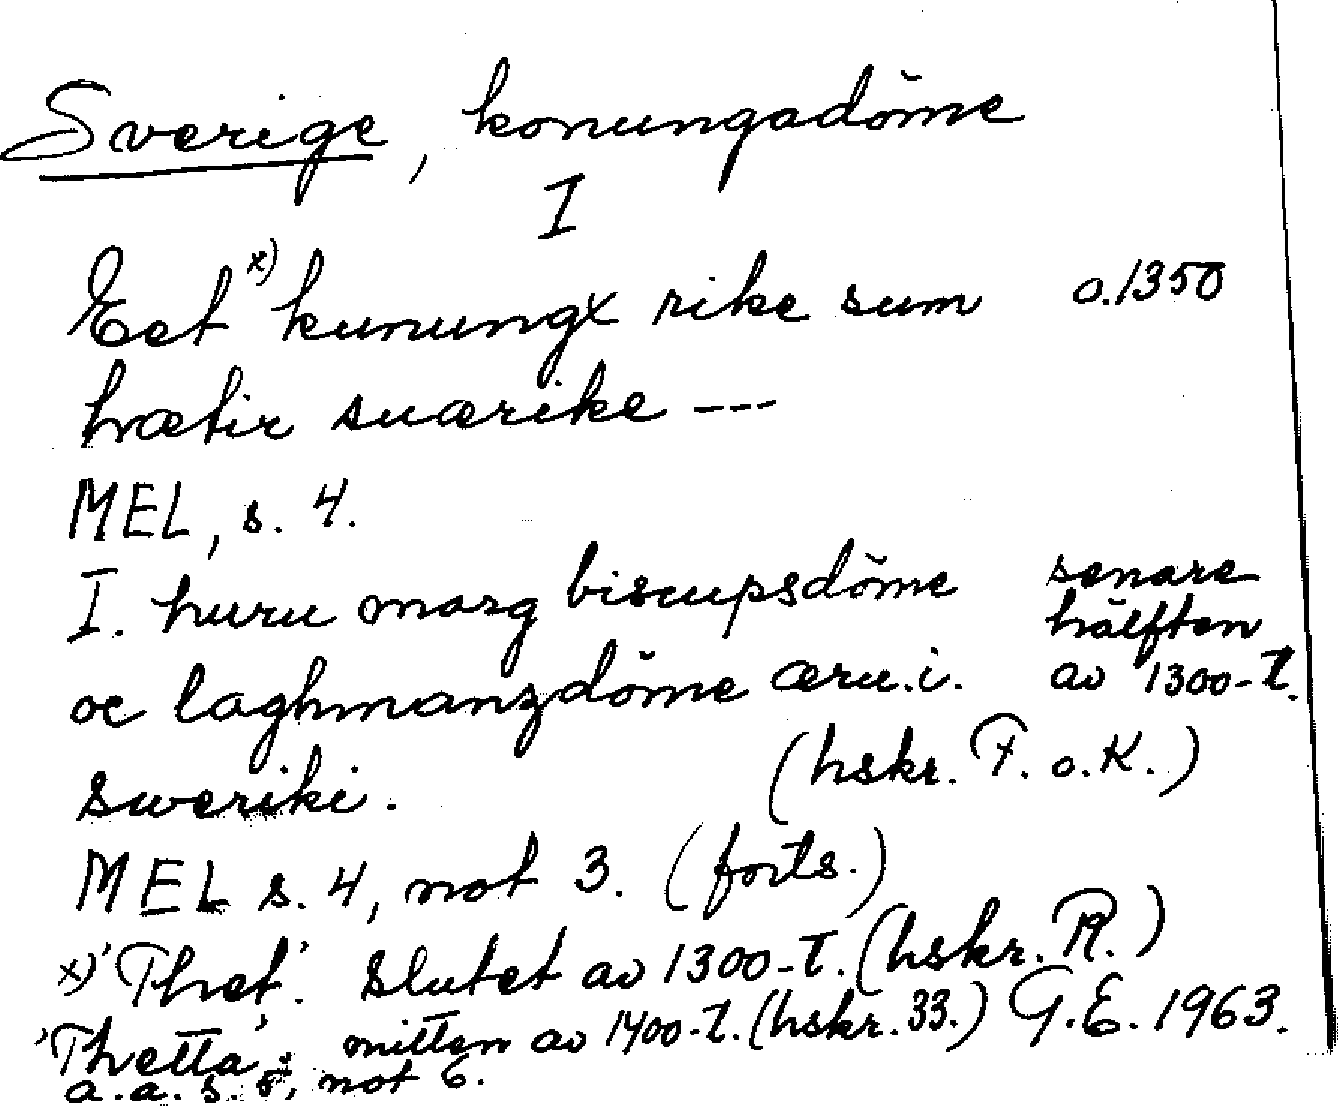 Sverige, konungadöme
I
Eet x) kunungx rike sum o.1350
hætir suærike ---
MEL, s. 4.
I. huru marg biscupsdöme senare hälften
oc laghmanzdöme æru.i. av 1300-t.
sweriki. (hskr. F. o. K.)
MEL s. 4, not 3. (forts.)
x) 'Thet'. Slutet av 1300-t. (hskr. R.)
'Thetta'; mitten av 1400-t. (hskr. 33.) G.E. 1963.
a.a. s. 5, not 6.